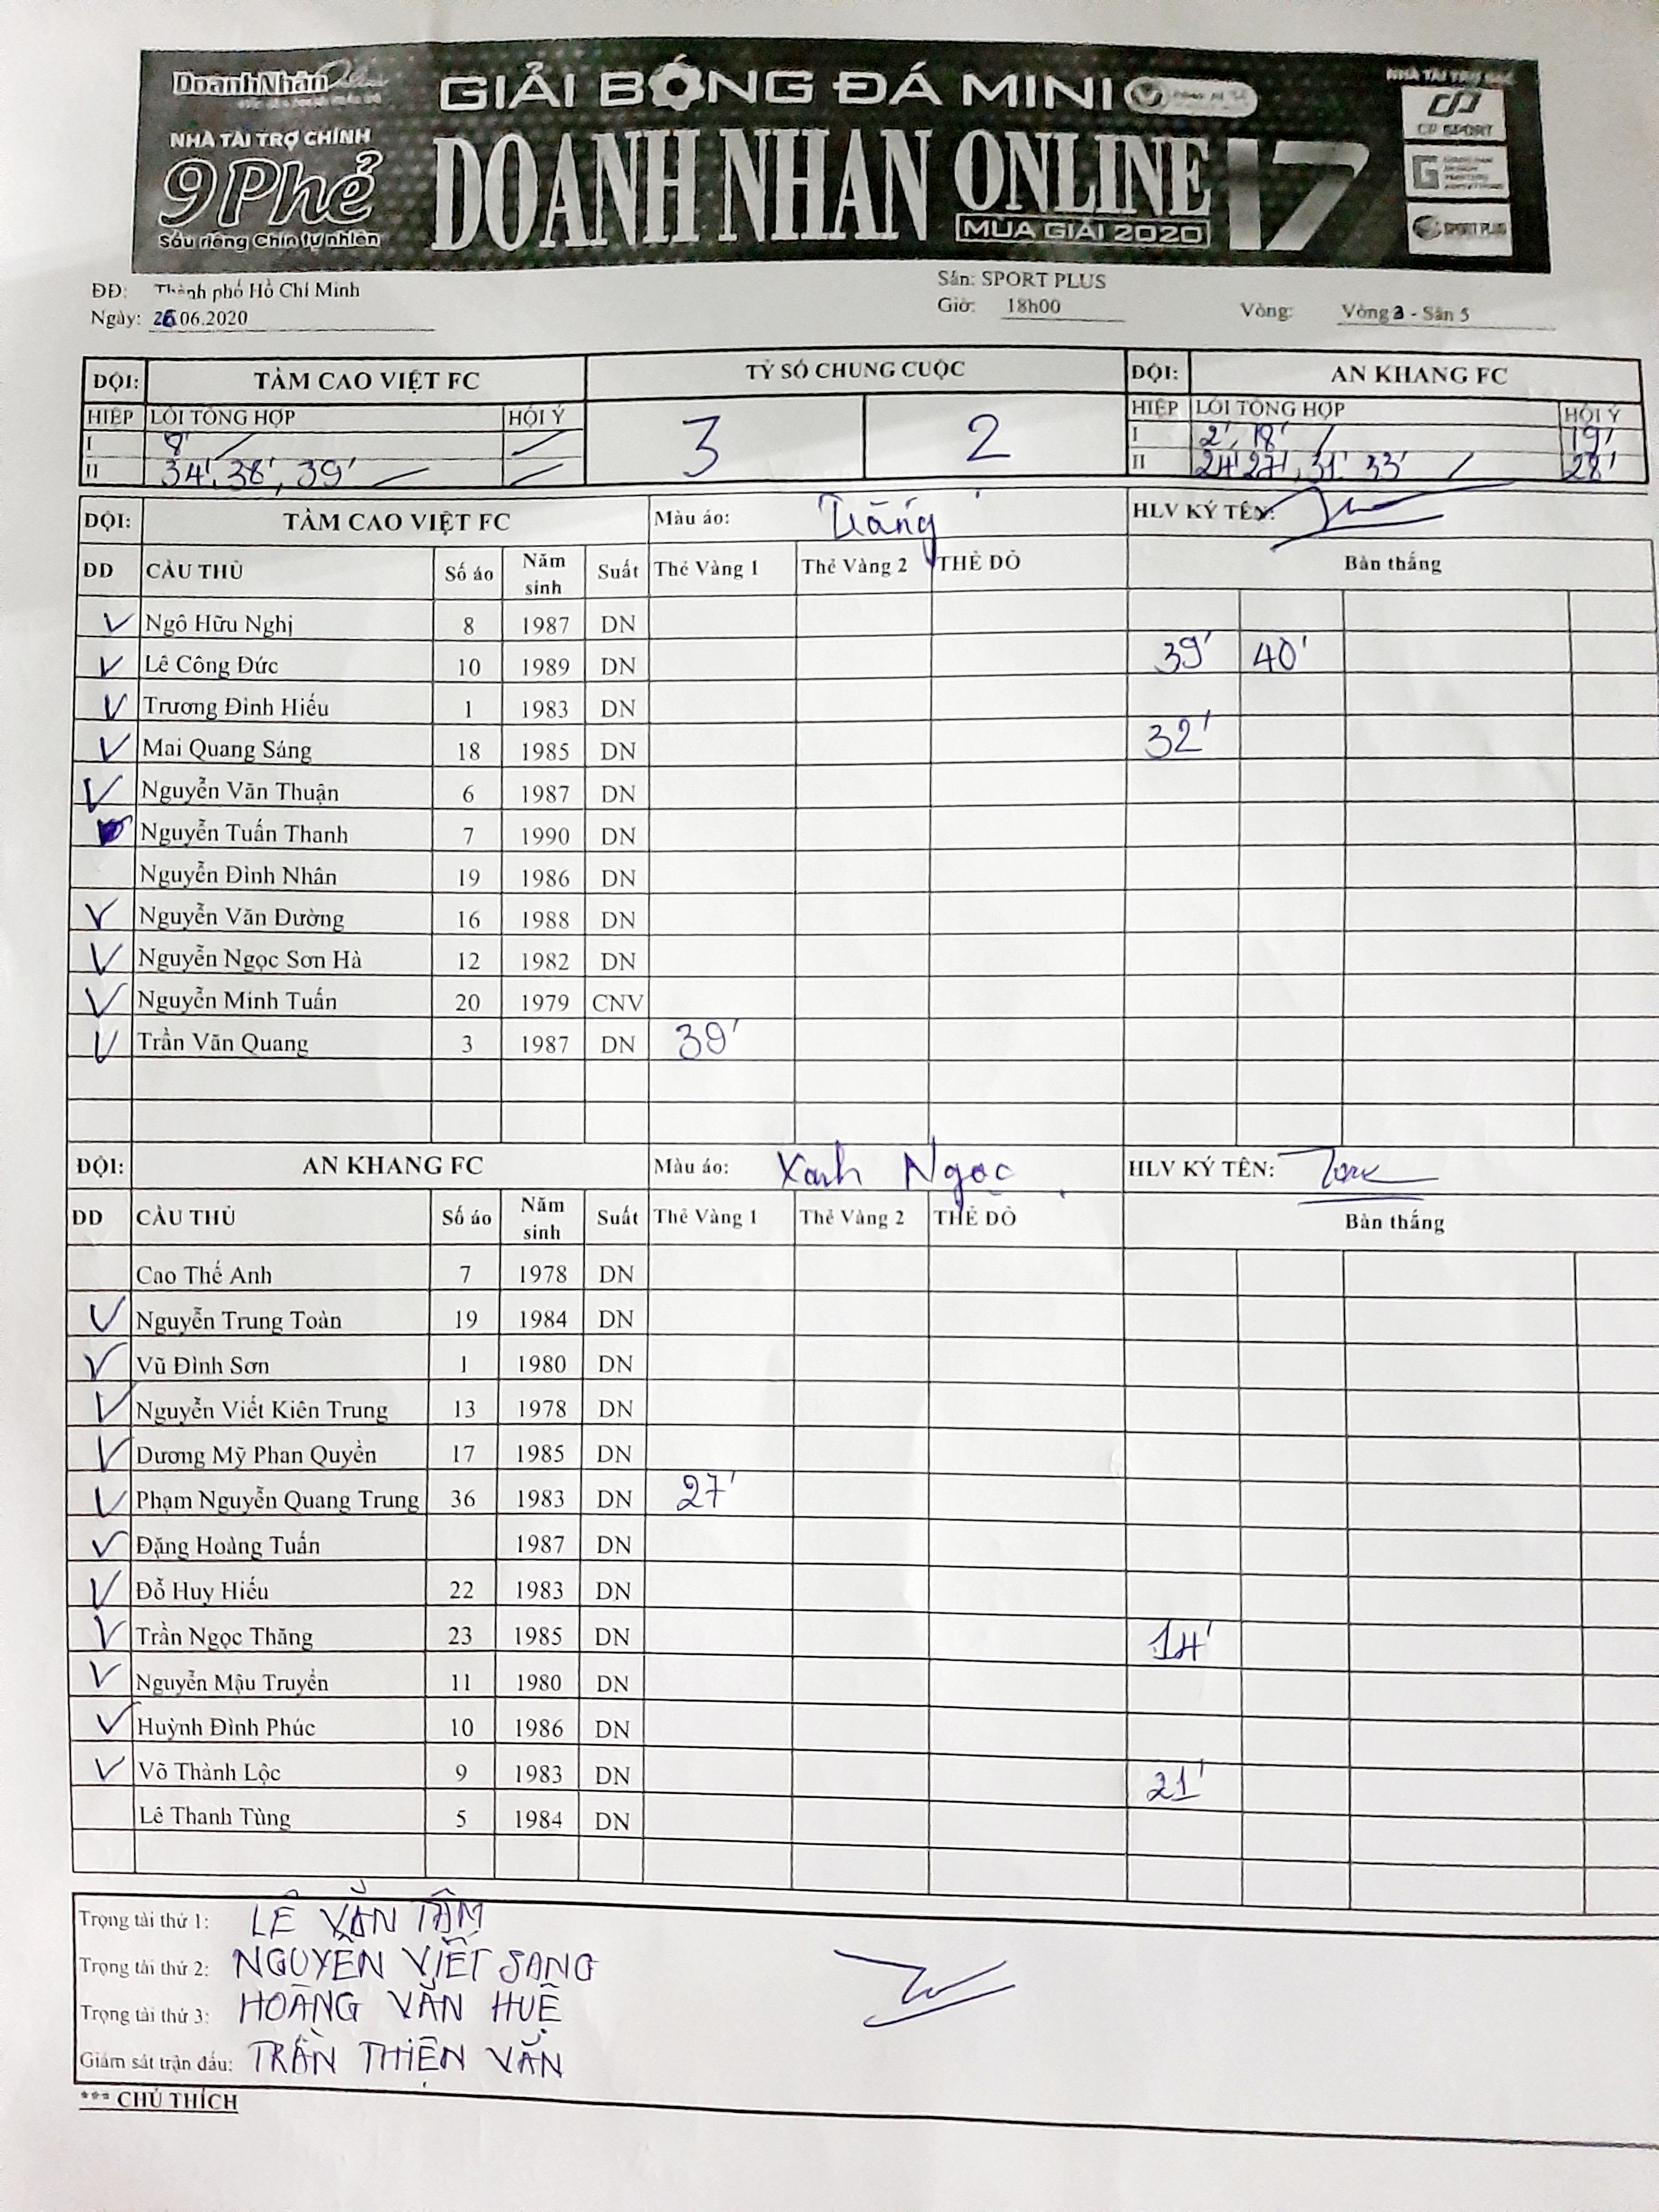 DoanhNhân
GIẢI BÓNG ĐÁ MINI
NHÀ TÀI TRỢ
NHÀ TÀI TRỢ CHÍNH
9Phẻ
Sầu riêng Chín tự nhiên
DOANH NHÂN ONLINE 17
MÙA GIẢI 2020
CP SPORT
SPORT PLUS
ĐĐ: Thành phố Hồ Chí Minh
Sân: SPORT PLUS
Ngày: 26.06.2020
Giờ: 18h00
Vòng: Vòng 3 - Sân 5
ĐỘI: TẦM CAO VIỆT FC TỶ SỐ CHUNG CUỘC ĐỘI: AN KHANG FC
HIỆP LỖI TỔNG HỢP HỘI Ý 3 2 HIỆP LỖI TỔNG HỢP HỘI Ý
I 8' I 2', 18' 19'
II 34', 38', 39' II 24' 27', 31' 33' 28'
ĐỘI: TẦM CAO VIỆT FC Màu áo: Trắng HLV KÝ TÊN:
DD CẦU THỦ Số áo Năm sinh Suất Thẻ Vàng 1 Thẻ Vàng 2 THẺ ĐỎ Bàn thắng
Ngô Hữu Nghị 8 1987 DN
Lê Công Đức 10 1989 DN 39' 40'
Trương Đình Hiếu 1 1983 DN
Mai Quang Sáng 18 1985 DN 32'
Nguyễn Văn Thuận 6 1987 DN
Nguyễn Tuấn Thanh 7 1990 DN
Nguyễn Đình Nhân 19 1986 DN
Nguyễn Văn Đường 16 1988 DN
Nguyễn Ngọc Sơn Hà 12 1982 DN
Nguyễn Minh Tuấn 20 1979 CNV
Trần Văn Quang 3 1987 DN 39'
ĐỘI: AN KHANG FC Màu áo: Xanh Ngọc HLV KÝ TÊN:
DD CẦU THỦ Số áo Năm sinh Suất Thẻ Vàng 1 Thẻ Vàng 2 THẺ ĐỎ Bàn thắng
Cao Thế Anh 7 1978 DN
Nguyễn Trung Toàn 19 1984 DN
Vũ Đình Sơn 1 1980 DN
Nguyễn Viết Kiên Trung 13 1978 DN
Dương Mỹ Phan Quyền 17 1985 DN
Phạm Nguyễn Quang Trung 36 1983 DN 27'
Đặng Hoàng Tuấn 1987 DN
Đỗ Huy Hiếu 22 1983 DN
Trần Ngọc Thăng 23 1985 DN 14'
Nguyễn Mậu Truyền 11 1980 DN
Huỳnh Đình Phúc 10 1986 DN
Võ Thành Lộc 9 1983 DN 21'
Lê Thanh Tùng 5 1984 DN
Trọng tài thứ 1: LÊ VĂN TÂM
Trọng tài thứ 2: NGUYỄN VIẾT SANG
Trọng tài thứ 3: HOÀNG VĂN HUỆ
Giám sát trận đấu: TRẦN THIỆN VĂN
*** CHÚ THÍCH